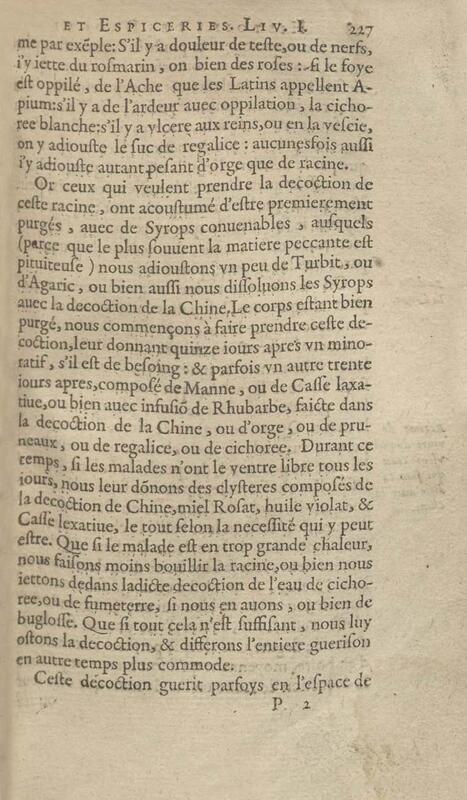 ET ESPICERIES. LIV. I. 227
me par exẽple: S'il y a douleur de teste, ou de nerfs,
i'y iette du rosmarin, on bien des roses: si le foye
est oppilé, de l'Ache que les Latins appellent A-
pium: s'il y a de l'ardeur auec oppilation, la cicho-
ree blanche: s'il y a vlcere aux reins, ou en la vescie,
on y adiouste le suc de regalice: aucunesfois aussi
i'y adiouste autant pesant d'orge que de racine.
Or ceux qui veulent prendre la decoction de
ceste racine, ont acoustumé d'estre premierement
purgés, auec de Syrops conuenables, ausquels
(parce que le plus souuent la matiere peccante est
pituiteuse) nous adioustons vn peu de Turbit, ou
d'Agaric, ou bien aussi nous dissoluons les Syrops
auec la decoction de la Chine. Le corps estant bien
purgé, nous commençons à faire prendre ceste de-
coction, leur donnant quinze iours apres vn mino-
ratif, s'il est de besoing: & parfois vn autre trente
iours apres, composé de Manne, ou de Casse laxa-
tiue, ou bien auec infusiõ de Rhubarbe, faicte dans
la decoction de la Chine, ou d'orge, ou de pru-
neaux, ou de regalice, ou de cichoree. Durant ce
temps, si les malades n'ont le ventre libre tous les
iours, nous leur dõnons des clysteres composés de
la decoction de Chine, miel Rosat, huile violat, &
Casse lexatiue, le tout selon la necessité qui y peut
estre. Que si le malade est en trop grande chaleur,
nous faisons moins bouillir la racine, ou bien nous
iettons dedans ladicte decoction de l'eau de cicho-
ree, ou de fumeterre, si nous en auons, ou bien de
buglosse. Que si tout cela n'est suffisant, nous luy
ostons la decoction, & differons l'entiere guerison
en autre temps plus commode.
Ceste decoction guerit parfoys en l'espace de
P. 2